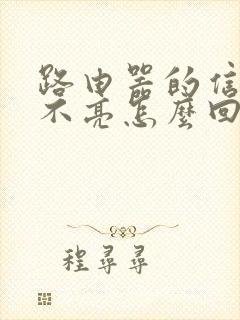 路由器的信
不亮怎麼回
程尋尋